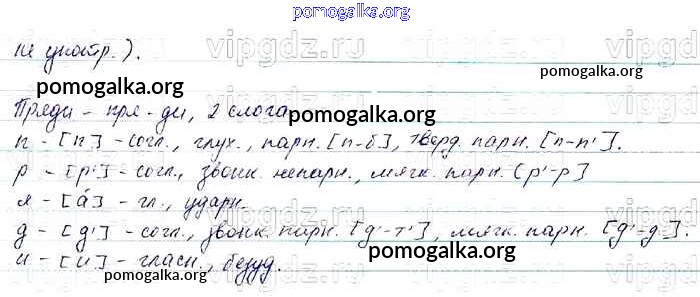 pomogalka.org
не употр.).
vipgdz.ru vipgdz.ru vipgdz.ru
pomogalka.org pomogalka.org
Пряди - пря-ди, 2 слога pomogalka.org
п - [п] - согл., глух., парн. [п-б], тверд. парн. [п-п'].
р - [р'] - согл., звонк. непарн., мягк. парн. [р'-р]
vipgdz.ru vipgdz.ru vipgdz.ru
я - [а́] - гл., ударн. pomogalka.org
д - [д'] - согл., звонк. парн. [д'-т'], мягк. парн. [д'-д].
и - [и] - гласн., безуд. pomogalka.org
pomogalka.org